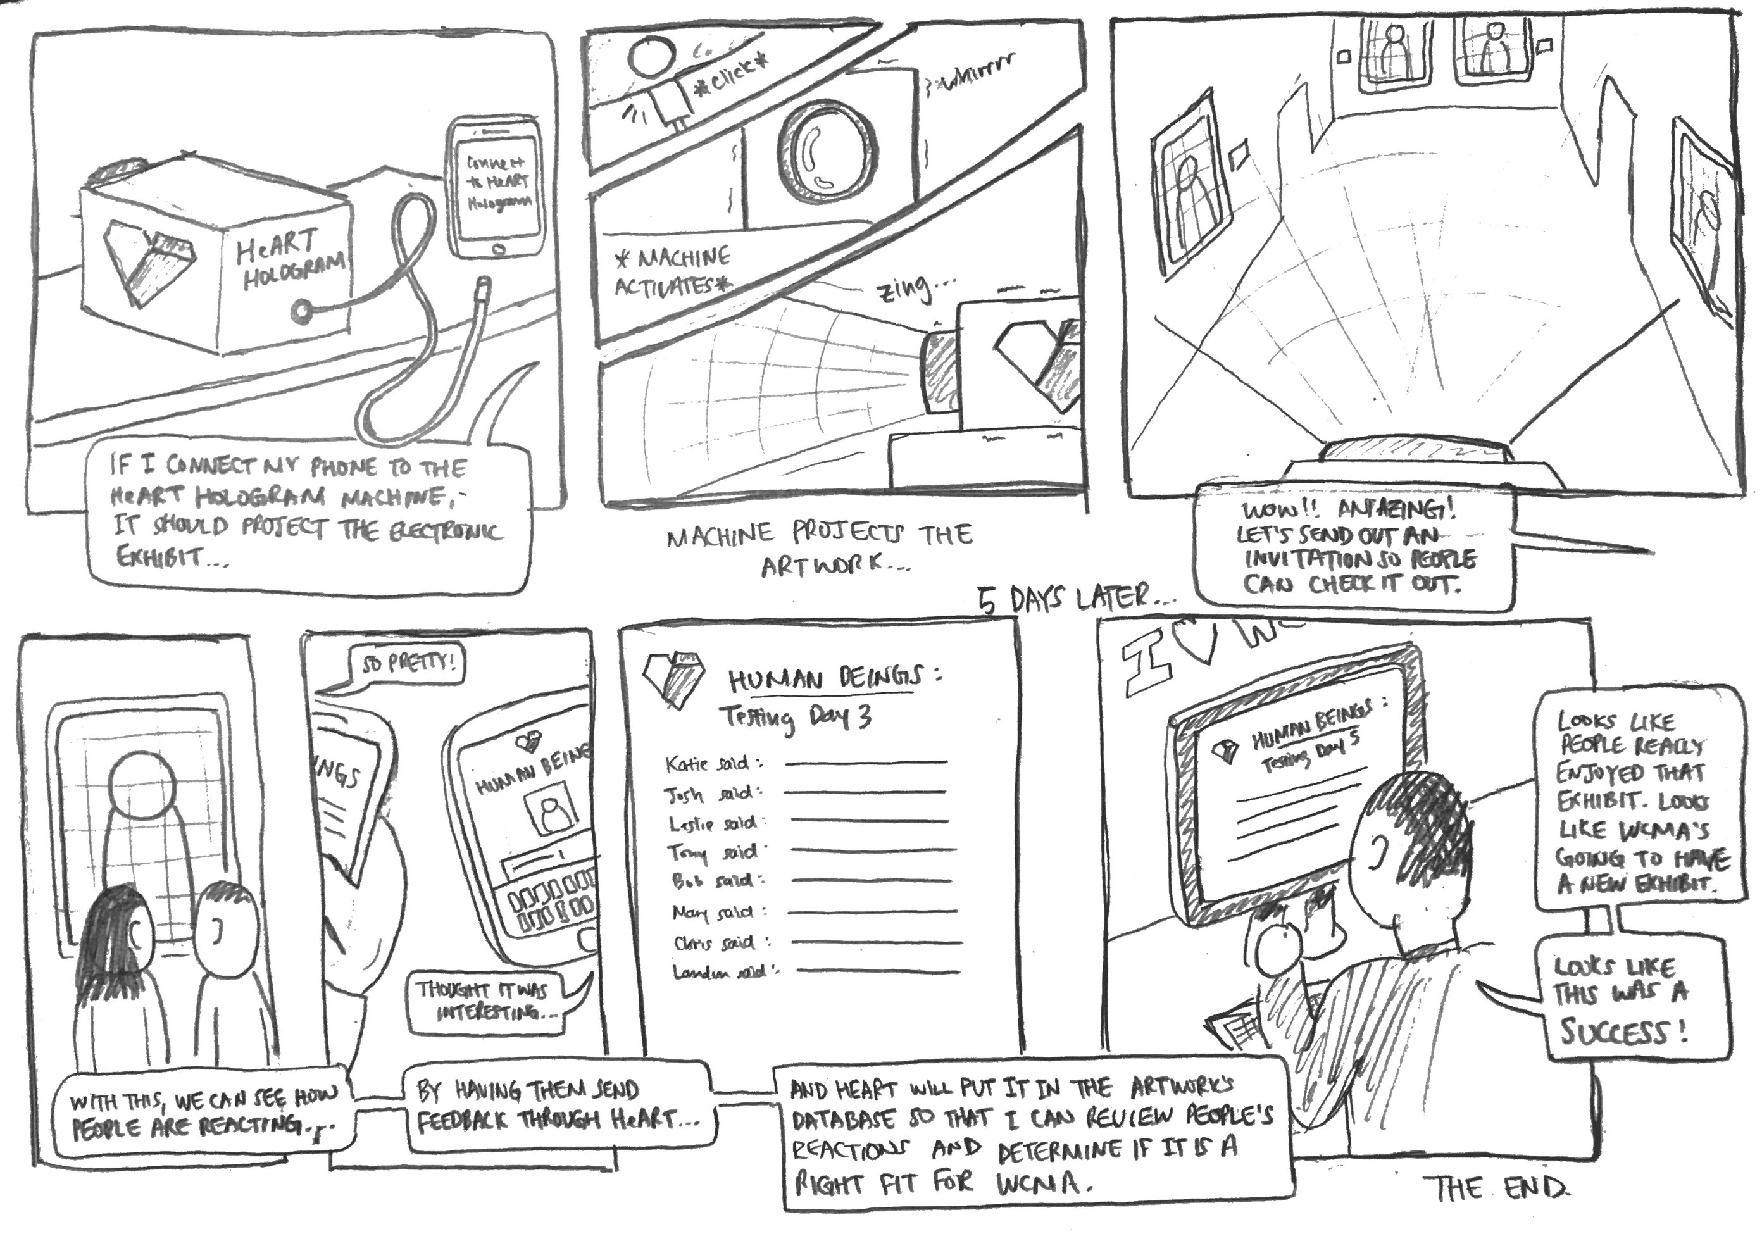 Connect
to HeART
Hologram
HeART
HOLOGRAM
IF I CONNECT MY PHONE TO THE
HeART HOLOGRAM MACHINE,
IT SHOULD PROJECT THE ELECTRONIC
EXHIBIT...
*click*
whirrrr
* MACHINE
ACTIVATES*
zing...
MACHINE PROJECTS THE
ARTWORK...
WOW!! AMAZING!
LET'S SEND OUT AN
INVITATION SO PEOPLE
CAN CHECK IT OUT.
5 DAYS LATER...
WITH THIS, WE CAN SEE HOW
PEOPLE ARE REACTING...
SO PRETTY!
INGS
HUMAN BEINGS
THOUGHT IT WAS
INTERESTING...
BY HAVING THEM SEND
FEEDBACK THROUGH HeART...
HUMAN BEINGS:
Testing Day 3
Katie said:
Josh said:
Leslie said:
Tony said:
Bob said:
Mary said:
Chris said:
Landon said:
AND HEART WILL PUT IT IN THE ARTWORK'S
DATABASE SO THAT I CAN REVIEW PEOPLE'S
REACTIONS AND DETERMINE IF IT IS A
RIGHT FIT FOR WCMA.
I ♡ WC
HUMAN BEINGS:
Testing Day 5
LOOKS LIKE
PEOPLE REALLY
ENJOYED THAT
EXHIBIT. LOOKS
LIKE WCMA'S
GOING TO HAVE
A NEW EXHIBIT.
LOOKS LIKE
THIS WAS A
SUCCESS!
THE END.